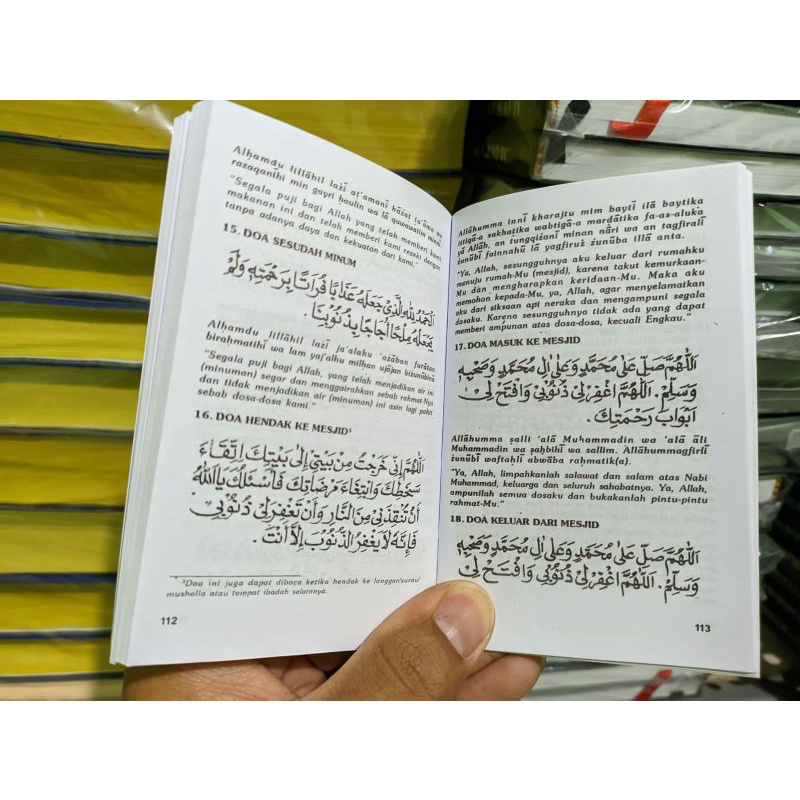 Alḥamdu lillāhil lażī aṭ'amanī hāżaṭ ṭa'āma wa
razaqanīhi min gayri ḥaulin wa lā quwwatim minnī
"Segala puji bagi Allah, yang telah memberi kami
makanan ini dan telah memberi kami rezeki dengan
tanpa adanya daya dan kekuatan dari kami."
15. DOA SESUDAH MINUM
اَلْحَمْدُ لِلّٰهِ الَّذِيْ جَعَلَهُ عَذْبًا فُرَاتًا بِرَحْمَتِهِ وَلَمْ
يَجْعَلْهُ مِلْحًا اُجَاجًا بِذُنُوْبِنَا .
Alḥamdu lillāhil lażī ja'alahu 'ażāban furātan
biraḥmatihī wa lam yaj'alhu milḥan ujājan biżunūbinā
"Segala puji bagi Allah, yang telah menjadikan air ini
(minuman) segar dan menggairahkan sebab rahmat-Nya
dan tidak menjadikan air (minuman) ini asin lagi pahit
sebab dosa-dosa kami."
16. DOA HENDAK KE MESJID³
اَللّٰهُمَّ اِنِّيْ خَرَجْتُ مِنْ بَيْتِيْ اِلٰى بَيْتِكَ اِتِّقَاءَ
سَخَطِكَ وَابْتِغَاءَ مَرْضَاتِكَ فَأَسْئَلُكَ يَا اَللّٰهُ
أَنْ تُنْقِذَنِيْ مِنَ النَّارِ وَأَنْ تَغْفِرَ لِيْ ذُنُوْبِيْ
فَإِنَّهُ لَا يَغْفِرُ الذُّنُوْبَ إِلَّا أَنْتَ .
³Doa ini juga dapat dibaca ketika hendak ke langgar/surau/
musholla atau tempat ibadah selainnya.
112
Allāhumma innī kharajtu mim baytī ilā baytika
ittiqā-a sakhaṭika wabtigā-a marḍātika fa-as-aluka
yā Allāh, an tunqiżanī minan nāri wa an tagfiralī
żunūbī fainnahū lā yagfiruż żunūba illā anta.
"Ya, Allah, sesungguhnya aku keluar dari rumahku
menuju rumah-Mu (mesjid), karena takut kemurkaan-
Mu dan mengharapkan keridaan-Mu. Maka aku
memohon kepada-Mu, ya, Allah, agar menyelamatkan
aku dari siksaan api neraka dan mengampuni segala
dosaku. Karena sesungguhnya tidak ada yang dapat
memberi ampunan atas dosa-dosa, kecuali Engkau."
17. DOA MASUK KE MESJID
اَللّٰهُمَّ صَلِّ عَلٰى مُحَمَّدٍ وَعَلٰى اٰلِ مُحَمَّدٍ وَصَحْبِهِ
وَسَلِّمْ . اَللّٰهُمَّ اغْفِرْ لِيْ ذُنُوْبِيْ وَافْتَحْ لِيْ
اَبْوَابَ رَحْمَتِكَ .
Allāhumma ṣalli 'alā Muḥammadin wa 'alā āli
Muḥammadin wa ṣaḥbihī wa sallim. Allāhummagfirlī
żunūbī waftaḥlī abwāba raḥmatik(a).
"Ya, Allah, limpahkanlah salawat dan salam atas Nabi
Muhammad, keluarga dan seluruh sahabatnya. Ya, Allah,
ampunilah semua dosaku dan bukakanlah pintu-pintu
rahmat-Mu."
18. DOA KELUAR DARI MESJID
اَللّٰهُمَّ صَلِّ عَلٰى مُحَمَّدٍ وَعَلٰى اٰلِ مُحَمَّدٍ وَصَحْبِهِ
وَسَلِّمْ . اَللّٰهُمَّ اغْفِرْ لِيْ ذُنُوْبِيْ وَافْتَحْ لِيْ
113